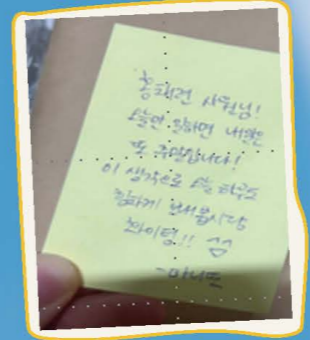 홍태준 사원님!
오늘만 일하면 내일은
또 주말입니다!
이 생각으로 오늘 하루도
힘차게 보내봅시당
화이팅!! ^^
- 마니또